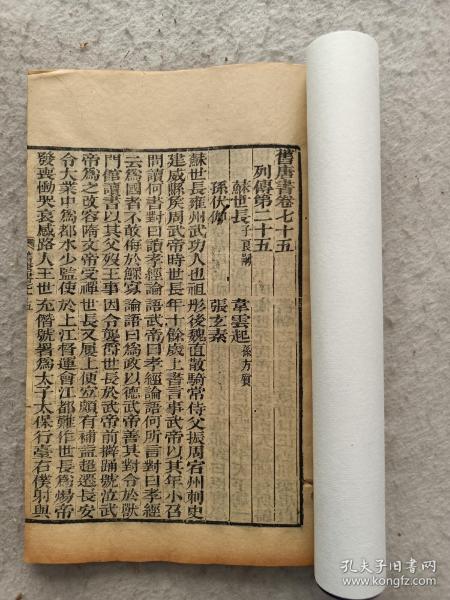 舊唐書卷七十五
列傳第二十五
蘇世長子良嗣 韋雲起孫方質
孫伏伽 張玄素
蘇世長雍州武功人也祖彤後魏直散騎常侍父振周宕州刺史
建威縣侯周武帝時世長年十餘歲上書言事武帝以其年小召
問讀何書對曰讀孝經論語武帝曰孝經論語何所言對曰孝經
云爲國者不敢侮於鰥寡論語曰爲政以德武帝善其對令於獸
門館讀書以其父歿王事因令襲爵世長於武帝前擗踊號泣武
帝爲之改容隋文帝受禪世長又屢上便宜頗有補益超遷長安
令大業中爲都水少監使於上江督運會江都難作世長爲煬帝
發喪慟哭哀感路人王世充僭號署爲太子太保行臺右僕射與
孔夫子旧书网
www.kongfz.com